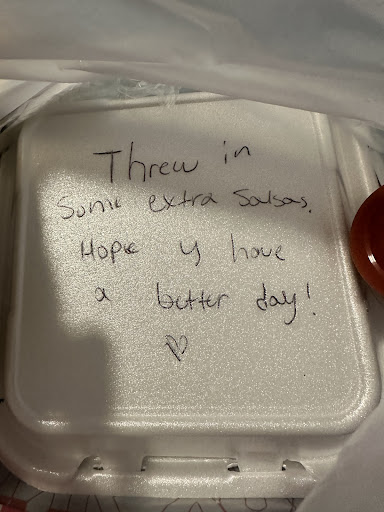 Threw in
Some extra Salsas.
Hope y have
a better day!
♡